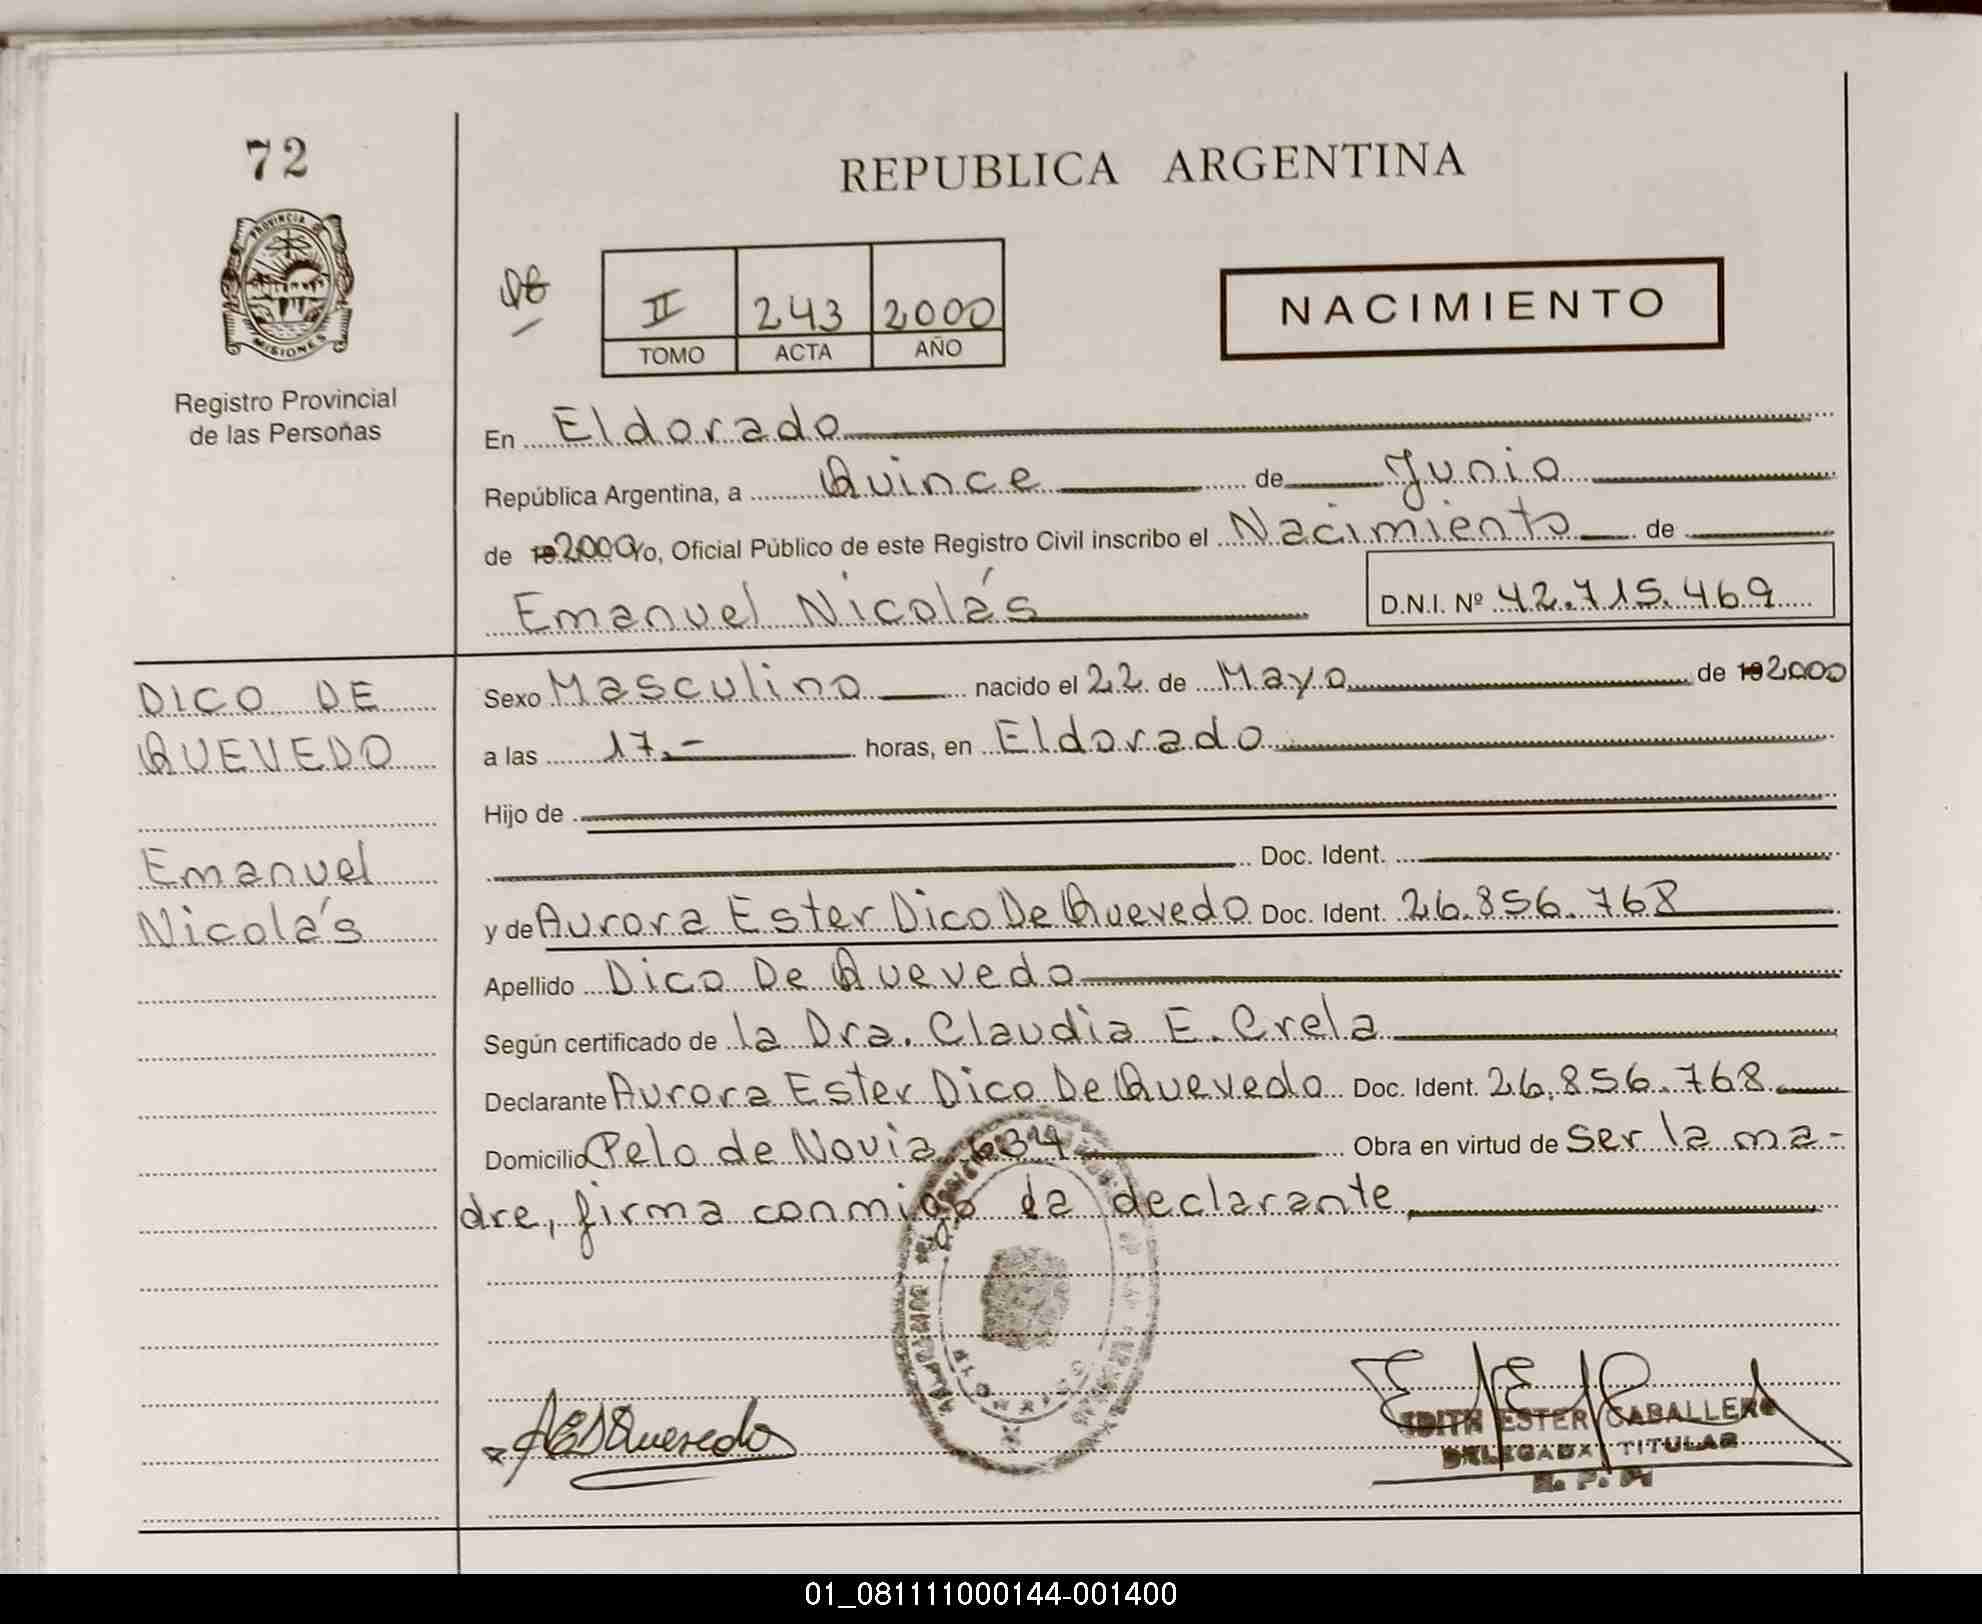 72
REPUBLICA ARGENTINA
PROVINCIA DE
MISIONES
Registro Provincial
de las Personas
II 243 2000
TOMO ACTA AÑO
NACIMIENTO
En Eldorado
República Argentina, a Quince de Junio
de 19 2000 Yo, Oficial Público de este Registro Civil inscribo el Nacimiento de
Emanuel Nicolás D.N.I. Nº 42.715.469
DICO DE
QUEVEDO
Emanuel
Nicolás
Sexo Masculino nacido el 22 de Mayo de 19 2000
a las 17.- horas, en Eldorado
Hijo de
Doc. Ident.
y de Aurora Ester Dico De Quevedo Doc. Ident. 26.856.768
Apellido Dico De Quevedo
Según certificado de la Dra. Claudia E. Crela
Declarante Aurora Ester Dico De Quevedo Doc. Ident. 26.856.768
Domicilio Pelo de Novia 634 Obra en virtud de ser la ma-
dre, firma conmigo la declarante
AEDQuevedo
EDITH ESTER CABALLERO
DELEGADA TITULAR
R. P. P.
01_081111000144-001400